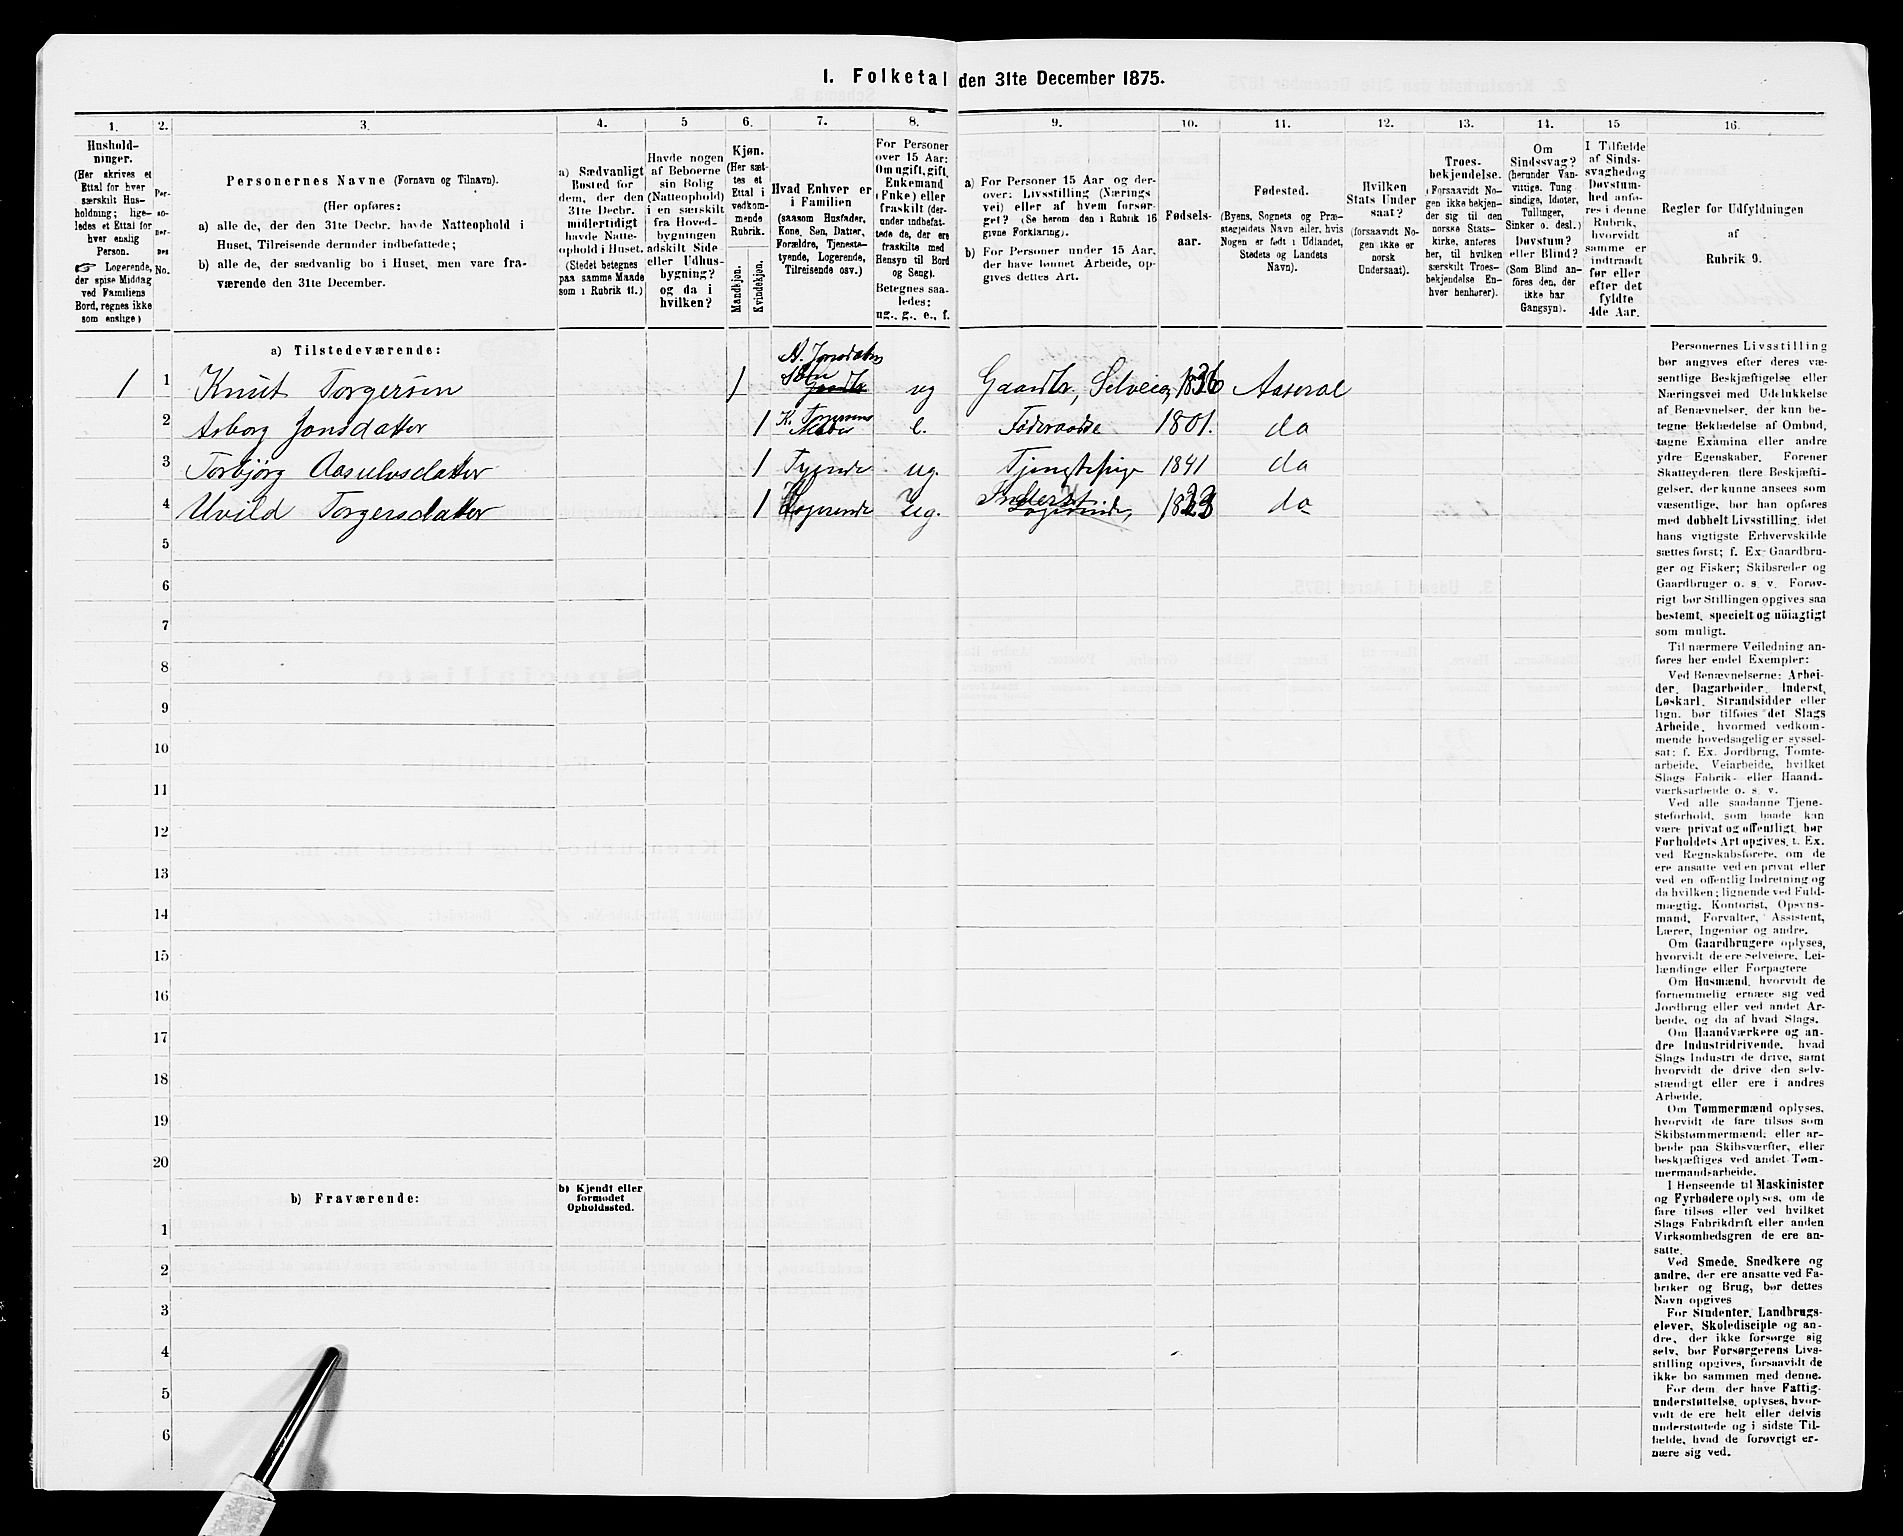 1. Folketal den 31te December 1875.
1. 2. 3. 4. 5 6. 7. 8. 9. 10. 11. 12. 13. 14. 15 16.
Hushold-
ninger.
(Her skrives et
Ettal for hver
særskilt Hus-
holdning; lige-
ledes et Ettal for
hver enslig
Person.
☞ Logerende,
der spise Middag
ved Familiens
Bord, regnes ikke
som enslige)
Per-
so-
ner-
nes
No.
Personernes Navne (Fornavn og Tilnavn).
(Her opføres:
a) alle de, der den 31te Decbr. havde Natteophold i
Huset, Tilreisende derunder indbefattede;
b) alle de, der sædvanlig bo i Huset, men vare fra-
værende den 31te December.
a) Sædvanligt
Bosted for
dem, der den
31te Decbr.
midlertidigt
havde Natte-
ophold i Huset.
(Stedet betegnes
paa samme Maade
som i Rubrik 11.)
Havde nogen
af Beboerne
sin Bolig
(Natteophold)
i en særskilt
fra Hoved-
bygningen
adskilt Side-
eller Udhus-
bygning?
og da i
hvilken?
Kjøn.
(Her sæt-
tes et
Ettal i
vedkom-
mende
Rubrik.
Mandkjøn.
Kvindekjøn.
Hvad Enhver er
i Familien
(saasom Husfader,
Kone, Søn, Datter,
Forældre, Tjeneste-
tyende, Logerende,
Tilreisende osv.)
For Personer
over 15 Aar:
Om ugift, gift,
Enkemand
(Enke) eller
fraskilt (der-
under indbefat-
tede de, der ere
fraskilte med
Hensyn til Bord
og Seng).
Betegnes saa-
ledes:
ug., g., e., f.
a) For Personer 15 Aar og der-
over: Livsstilling (Nærings
vei) eller af hvem forsør-
get? (Se herom den i Rubrik 16
givne Forklaring).
b) For Personer under 15 Aar,
der have lønnet Arbeide, op-
gives dettes Art.
Fødsels-
aar.
Fødested.
(Byens, Sognets og Præ-
stegjeldets Navn eller, hvis
Nogen er født i Udlandet,
Stedets og Landets
Navn).
Hvilken
Stats Under
saat?
(forsaavidt No-
gen ikke er
norsk
Undersaat).
Troes-
bekjendelse.
(Forsaavidt No-
gen ikke bekjen-
der sig til den
norske Stats-
kirke, anføres
her, til hvilken
særskilt Troes-
bekjendelse En-
hver henhører).
Om
Sindssvag?
(herunder Van-
vittige, Tung
sindige, Idioter,
Tullinger,
Sinker o. desl.)
Døvstum?
eller Blind?
(Som Blind an-
føres den, der
ikke har
Gangsyn).
I Tilfælde
af Sinds-
svaghed og
Døvstum-
hed anfø-
res i denne
Rubrik,
hvorvidt
samme er
indtraadt
før eller
efter det
fyldte
4de Aar.
Regler for Udfyldningen
af
Rubrik 9.
a) Tilstedeværende:
1 1 Knut Torgersen 1 A. Jonsdatters Søn ug Gaardbr, Selveier, 1836 Aaseral
2 Asborg Jonsdatter 1 K. Torgersens Moder e. Føderaadse 1801. do
3 Torbjørg Aasulvsdatter 1 Tyende ug. Tjenestepige 1841 do
4 Uvild Torgersdatter 1 Logerende Ug. Inderst do
5
6
7
8
9
10
11
12
13
14
15
16
17
18
19
20
b) Fraværende:
b) Kjendt eller
formodet
Opholdssted.
1
2
3
4
5
6
Personernes Livsstilling
bør angives efter deres væ-
sentlige Beskjæftigelse eller
Næringsvei med Udelukkelse
af Benævnelser, der kun be-
tegne Beklædelse af Ombud,
tagne Examina eller andre
ydre Egenskaber. Forener
Skatteyderen flere Beskjæfti-
gelser, der kunne ansees som
væsentlige, bør han opføres
med dobbelt Livsstilling, idet
hans vigtigste Erhvervskilde
sættes først; f. Ex. Gaardbru-
ger og Fisker; Skibsreder og
Gaardbruger o. s. v. Forøv-
rigt bør Stillingen opgives saa
bestemt, specielt og nöiagtigt
som muligt.
Til nærmere Veiledning an-
føres her endel Exempler:
Ved Benævnelserne: Arbei-
der, Dagarbeider, Inderst,
Løskarl, Strandsidder eller
lign. bør tilføies det Slags
Arbeide, hvormed vedkom-
mende hovedsagelig er syssel-
sat: f. Ex. Jordbrug, Tomte-
arbeide, Veiarbeide, hvilket
Slags Fabrik- eller Haand-
værksarbeide o. s. v.
Ved alle saadanne Tjene-
steforhold, som baade kan
være privat og offentligt, bør
Forholdets Art opgives, t. Ex.
ved Regnskabsførere, om de
ere ansatte ved en privat eller
ved en offentlig Indretning og
da hvilken; lignende ved Fuld-
mægtig, Kontorist, Opsyns-
mand, Forvalter, Assistent,
Lærer, Ingeniør og andre.
Om Gaardbrugere oplyses,
hvorvidt de ere Selveiere, Lei-
lændinge eller Forpagtere
Om Husmænd, hvorvidt de
fornemmelig ernære sig ved
Jordbrug eller ved andet Ar-
beide, og da af hvad Slags.
Om Haandværkere og an-
dre Industridrivende, hvad
Slags Industri de drive, samt
hvorvidt de drive den selv-
stændigt eller ere i andres
Arbeide.
Om Tømmermænd oplyses,
hvorvidt de fare tilsøs som
Skibstømmermænd, eller ar-
beide paa Skibsværfter, eller
beskjæftiges ved andet Tøm-
mermandsarbeide.
I Henseende til Maskinister
og Fyrbødere oplyses, om de
fare tilsøs eller ved hvilket
Slags Fabrikdrift eller anden
Virksomhedsgren de ere an-
satte.
Ved Smede, Snedkere og
andre, der ere ansatte ved Fa-
briker og Brug, bør dettes
Navn opgives
For Studenter, Landbrugs-
elever, Skoledisciple og an-
dre, der ikke forsørge sig
selv, bør Forsørgerens Livs-
stilling opgives, forsaavidt de
ikke bo sammen med denne.
For dem, der have Fattig-
understøttelse, oplyses, hvor-
vidt de ere helt eller delvis
understøttede og i sidste Til-
fælde, hvad de forøvrigt er-
nære sig ved.